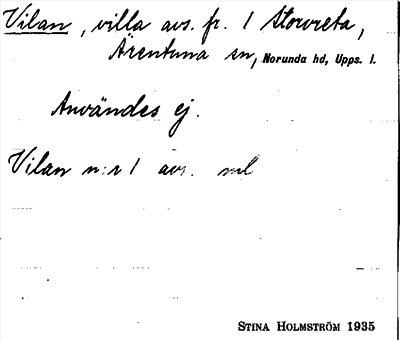 Vilan, villa avs. fr. 1 Storvreta,
Ärentuna sn, Norunda hd, Upps. l.
Användes ej.
Vilan n:r 1 avs.
STINA HOLMSTRÖM 1935